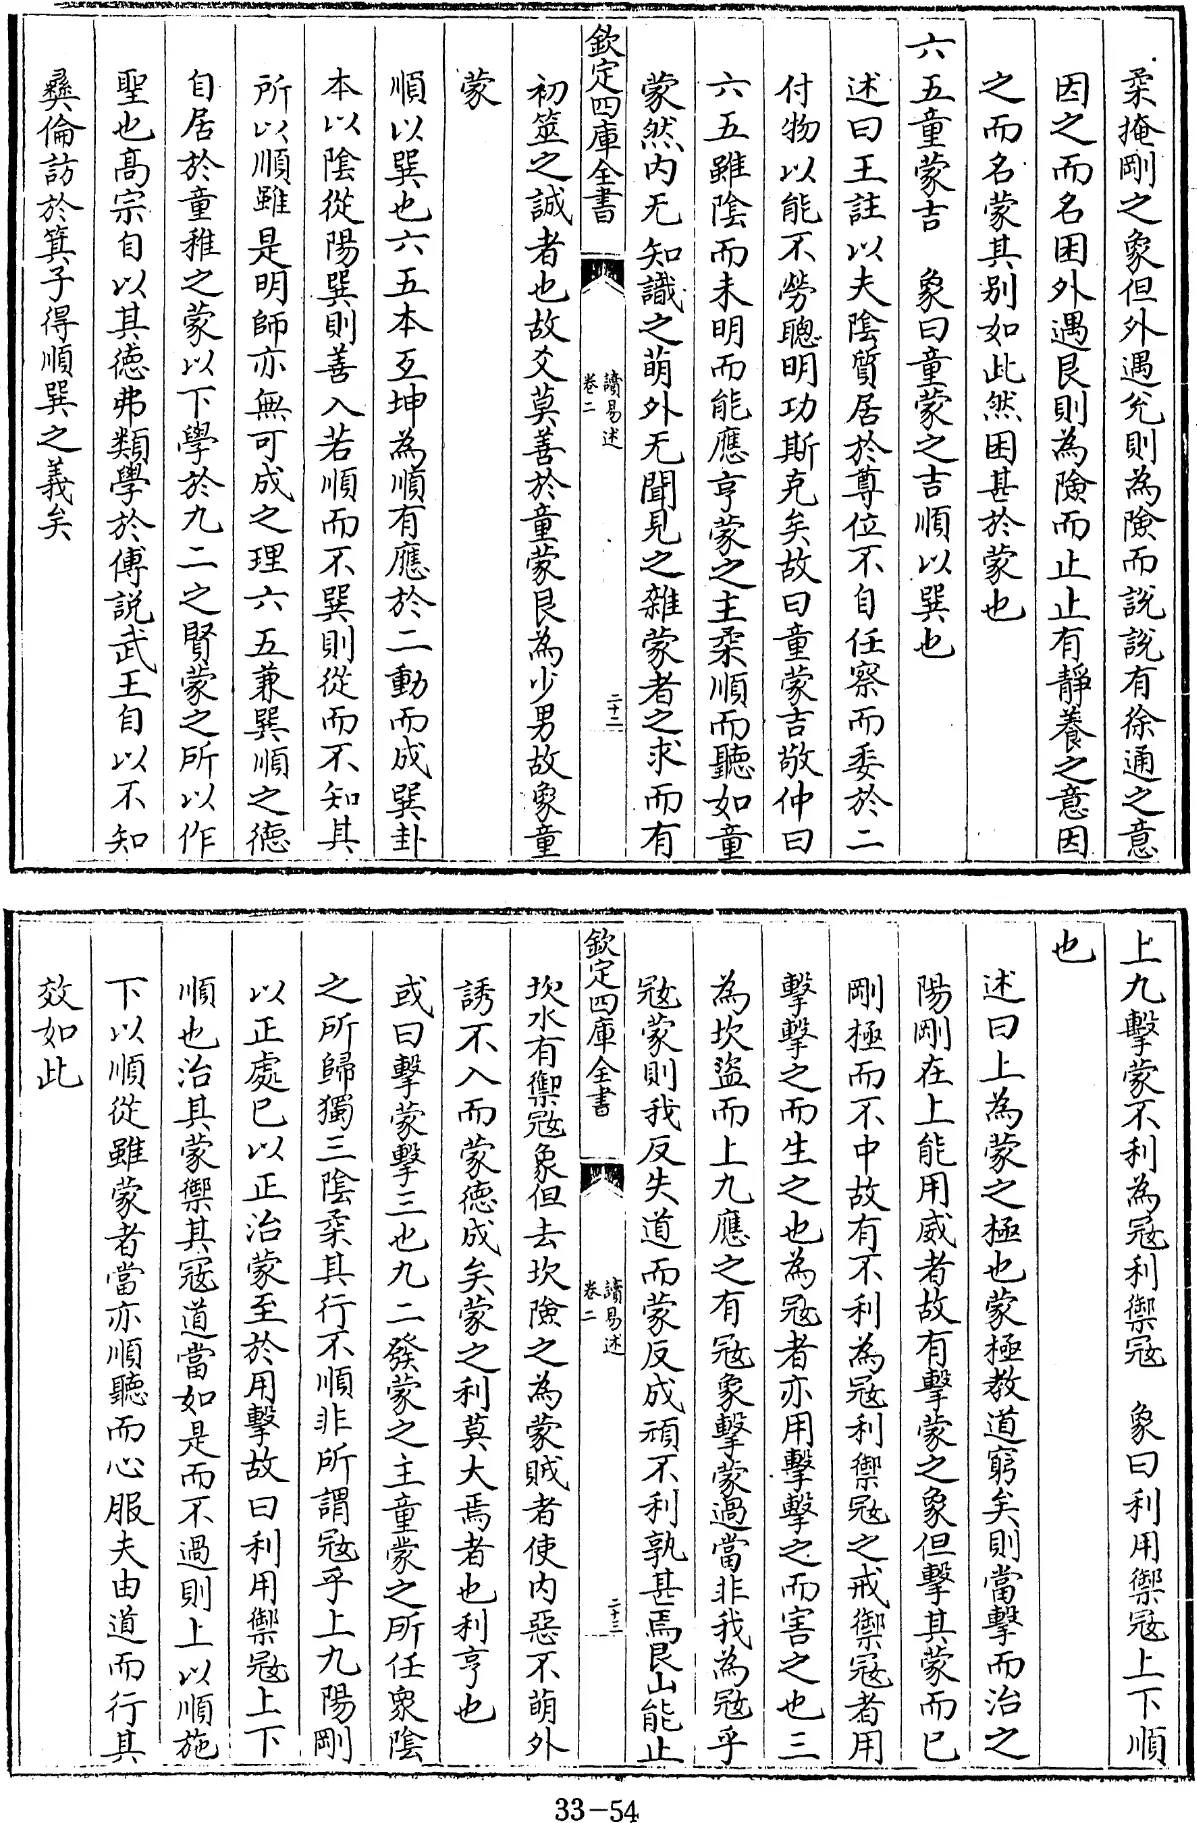 柔掩剛之象但外遇兌則為險而説説有徐通之意
因之而名困外遇艮則為險而止止有靜養之意因
之而名蒙其别如此然困甚於蒙也
六五童蒙吉　象曰童蒙之吉順以巽也
述曰王註以夫陰質居於尊位不自任察而委於二
付物以能不勞聰明功斯克矣故曰童蒙吉敬仲曰
六五雖陰而未明而能應亨蒙之主柔順而聽如童
蒙然内无知識之萌外无聞見之雜蒙者之求而有
欽定四庫全書
讀易述
卷二
二十二
初筮之誠者也故爻莫善於童蒙艮為少男故象童
蒙
順以巽也六五本互坤為順有應於二動而成巽卦
本以陰從陽巽則善入若順而不巽則從而不知其
所以順雖是明師亦無可成之理六五兼巽順之德
自居於童稚之蒙以下學於九二之賢蒙之所以作
聖也高宗自以其德弗類學於傅説武王自以不知
彝倫訪於箕子得順巽之義矣
上九擊蒙不利為冦利禦冦　象曰利用禦冦上下順
也
述曰上為蒙之極也蒙極教道窮矣則當擊而治之
陽剛在上能用威者故有擊蒙之象但擊其蒙而已
剛極而不中故有不利為冦利禦冦之戒禦冦者用
擊擊之而生之也為冦者亦用擊擊之而害之也三
為坎盜而上九應之有冦象擊蒙過當非我為冦乎
冦蒙則我反失道而蒙反成頑不利孰甚焉艮山能止
欽定四庫全書
讀易述
卷二
二十三
坎水有禦冦象但去坎險之為蒙賊者使内惡不萌外
誘不入而蒙德成矣蒙之利莫大焉者也利亨也
或曰擊蒙擊三也九二發蒙之主童蒙之所任衆陰
之所歸獨三陰柔其行不順非所謂冦乎上九陽剛
以正處已以正治蒙至於用擊故曰利用禦冦上下
順也治其蒙禦其冦道當如是而不過則上以順施
下以順從雖蒙者當亦順聽而心服夫由道而行其
效如此
33-54